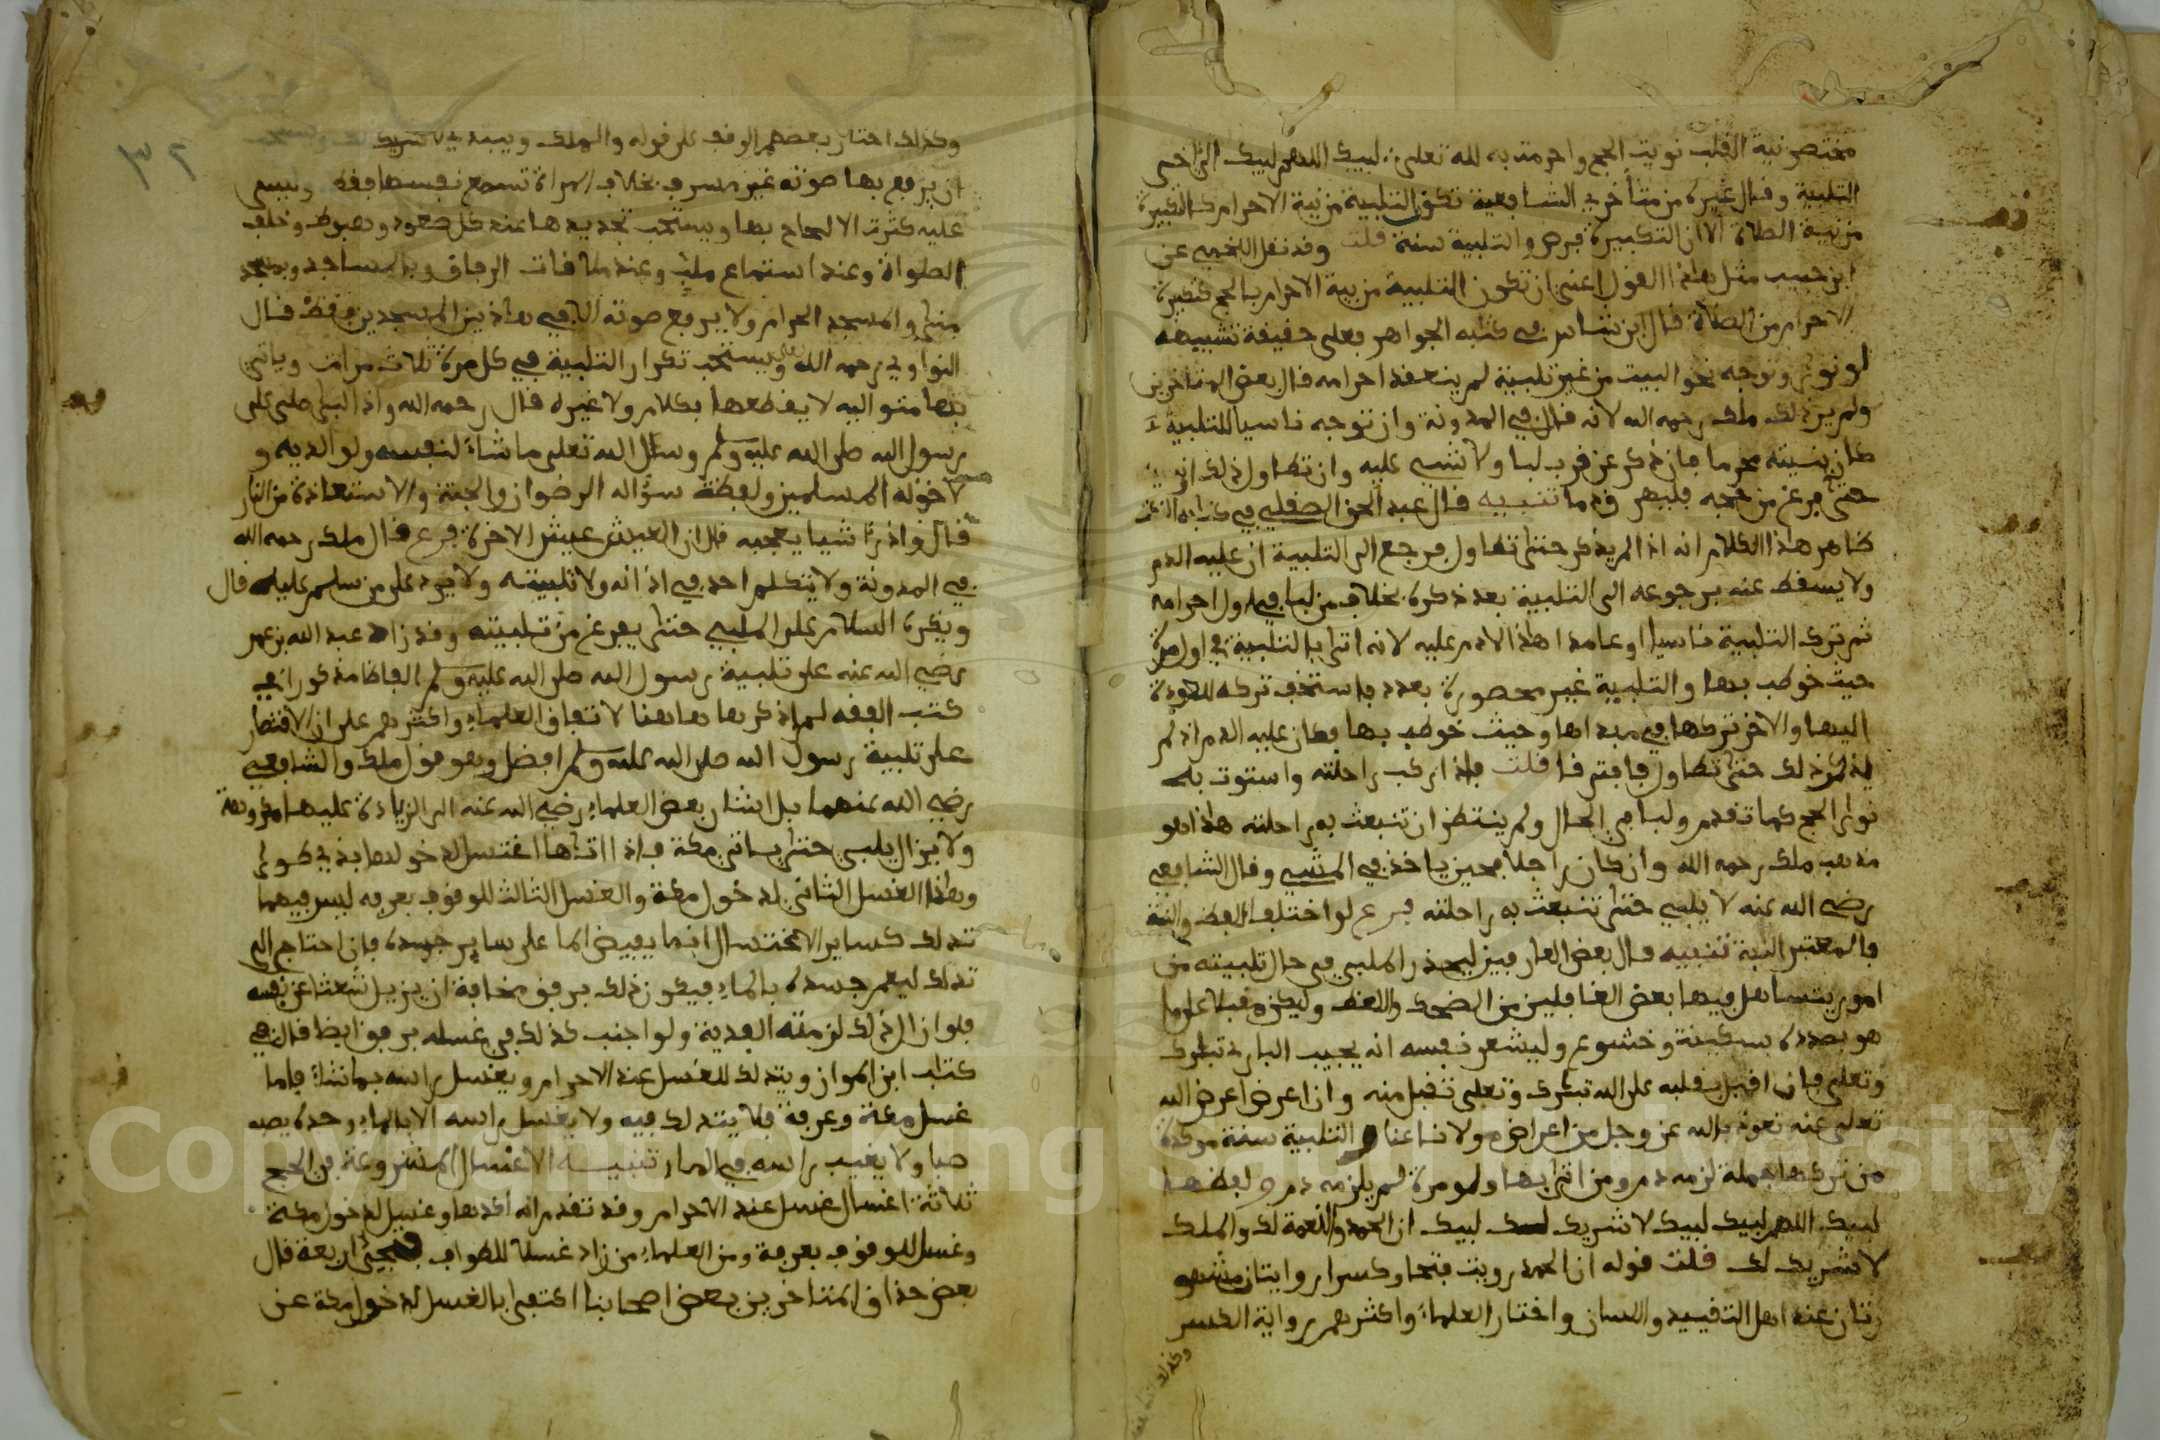 مختصر نية القلب نويت الحج واحرمت به لله تعلى لبيك اللهم لبيك الى اخر
التلبية وقال غيره من متأخري الشافعية تكون التلبية من نية الاحرام كالتكبيرة
من نية الصلاة الا ان التكبيرة فرض والتلبية سنة قلت وقد نقل اللخمي عن
ابن حبيب مثل هذا القول اعني ان تكون التلبية من نية الاحرام بالحج كتكبيرة
الاحرام من الصلاة قال ابن شاس في كتابه الجواهر فعلى حقيقة تشبيهه
لو نوى وتوجه نحو البيت من غير تلبية لم ينعقد احرامه قال بعض المتاخرين
ولم ير ذلك ملك رحمه الله لانه قال في المدونة وان توجه ناسيا للتلبية
كان بنيته محرما فان ذكر عن قرب لبا ولا شيء عليه وان تطاول ذلك او
حتى فرغ من حجه فليهر ق دما تنبيه قال عبد الحق الصقلي في كتابه النكت
ظاهر هذا الكلام انه اذا لم يذكر حتى تطاول فرجع الى التلبية ان عليه الدم
ولا يسقط عنه برجوعه الى التلبية بعد ذكره بخلاف من لبا في اول احرامه
ثم ترك التلبية ناسيا او عامدا هذا لا دم عليه لانه اتى بالتلبية في اول مرة
حيث خوطب بها والتلبية غير محصورة بعدد فاستخف تركه للعودة
اليها والاخر تركها في مبداها وحيث خوطب بها فكان عليه الدم اذ لم
يذكر ذلك حتى تطاول فافترقا قلت فاذا ركب راحلته واستوت به
نوى الحج كما تقدم ولبا في الحال ولم ينتظر ان تنبعث به راحلته هذا هو
مذهب ملك رحمه الله وان كان راجلا فحين ياخذ في المشي وقال الشافعي
رضي الله عنه لا يلبي حتى تنبعث به راحلته فرع لو اختلف اللفظ والنية
فالمعتبر النية تنبيه قال بعض العارفين ليحذر الملبي في حال تلبيته من
امور يتساهل فيها بعض الغافلين من الضحك واللغط وليكن مقبلا على ما
هو بصدده بسكينة وخشوع وليشعر نفسه انه يجيب الباري تبارك
وتعلى فان اقبل بقلبه على الله تبارك وتعلى تقبل منه وان اعرض اعرض الله
تعلى عنه نعوذ بالله عز وجل من اعراض مولانا عنا والتلبية سنة مؤكدة
من تركها جملة لزمه دم ومن اتى بها ولو مرة لم يلزمه دم ولفظها
لبيك اللهم لبيك لبيك لا شريك لك لبيك ان الحمد والنعمة لك والملك
لا شريك لك قلت قوله ان الحمد رويت فتحا وكسرا روايتان مشهو
رتان عند اهل التقييد واللسان واختار العلماء واكثرهم رواية الكسر
وكذلك اختار
وكذلك اختار بعضهم الوقف على قوله والملك ويبتدئ لا شريك لك ويستحب
ان يرفع بها صوته غير مسرف بخلاف المراة تسمع نفسها فقط وليس
عليه كثرة الالحاح بها ويستحب تجديدها عند كل صعود وهبوط وخلف
الصلوات وعند استماع ملب وعند ملاقات الرفاق وبالمساجد وبمسجد
منى والمسجد الحرام ولا يرفع صوته الا في هاذين المسجدين فقط قال
النواوي رحمه الله تعالى ويستحب تكرار التلبية في كل مرة ثلاث مرات وياتي
بها متواليه لا يقطعها بكلام ولا غيره قال رحمه الله واذا لبى صلى على
رسول الله صلى الله عليه وسلم وسال الله تعلى ما شاء لنفسه ولوالديه و
لاخوته المسلمين ولفظة سؤاله الرضوان والجنة والاستعاذة من النار
قال واذا را شيا يعجبه قال ان العيش عيش الاخرة فرع قال ملك رحمه الله
في المدونة ولا يتكلم احد في اذانه ولا تلبيته ولا يرد على من سلم عليه قال
ويكره السلام على الملبي حتى يفرغ من تلبيته وقد زاد عبد الله بن عمر
رضي الله عنه على تلبية رسول الله صلى الله عليه وسلم الفاظا مذكورة في
كتب الفقه لم اذكرها هاهنا لاتفاق العلماء واكثرهم على ان الاقتصار
على تلبية رسول الله صلى الله عليه وسلم افضل وهو قول ملك والشافعي
رضي الله عنهما بل اشار بعض العلماء رضي الله عنه الى الزيادة عليها مكروهة
ولا يزال يلبي حتى ياتي مكة فاذا اتاها اغتسل لدخولها بذي طوى
وهذا الغسل الثاني لدخول مكة والغسل الثالث للوقوف بعرفه ليس فيهما
تدلك كساير الاغتسال انما يفيض الما على ساير جسده فان احتاج الى
تدلك ليعم جسده بالماء فيكون ذلك برفق مخافة ان يزيل شعثا عن نفسه
فلو ازال ذلك لزمته الفدية ولو اجنب كذلك في غسله برفق ايضا قال في
كتاب ابن المواز ويتدلك للغسل عند الاحرام ويغسل راسه بما شاء فاما
غسل مكة وعرفة فلا يتدلك فيه ولا يغسل راسه الا بالماء وحده يصبه
صبا ولا يغيب راسه في الماء تنبيه الاغتسال المشروعة في الحج
ثلاثة اغسال غسل عند الاحرام وقد تقدم انه اكدها وغسل لدخول مكة
وغسل للوقوف بعرفة ومن العلماء من زاد غسلا للطواف فتجي اربعة قال
بعض حذاق المتاخرين بعض اصحابنا اكتفى بالغسل لدخول مكة عن